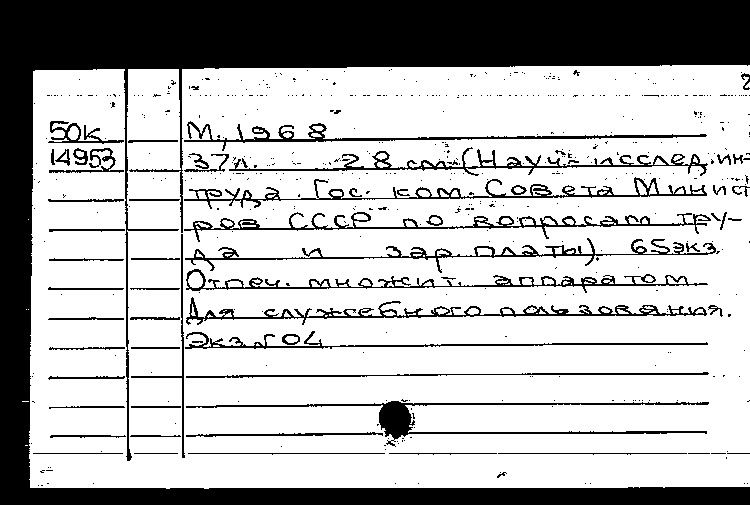 2
50К М., 1968
14953 37л. 28 см (Науч.- исслед. ин-
труда. Гос. ком. Совета Минист
ров СССР по вопросам тру-
да и зар. платы). 65экз.
Отпеч. множит. аппаратом.
Для служебного пользования.
Экз. №04